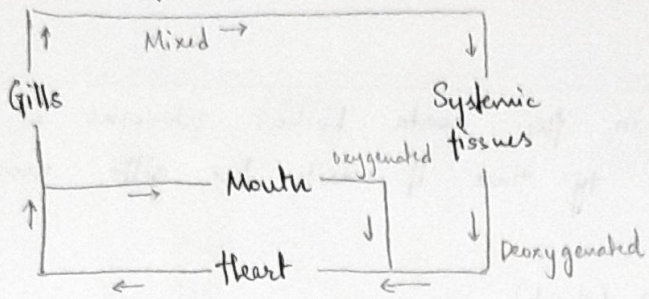 Mixed →
Gills
Systemic
tissues
oxygenated
Mouth
Deoxygenated
Heart